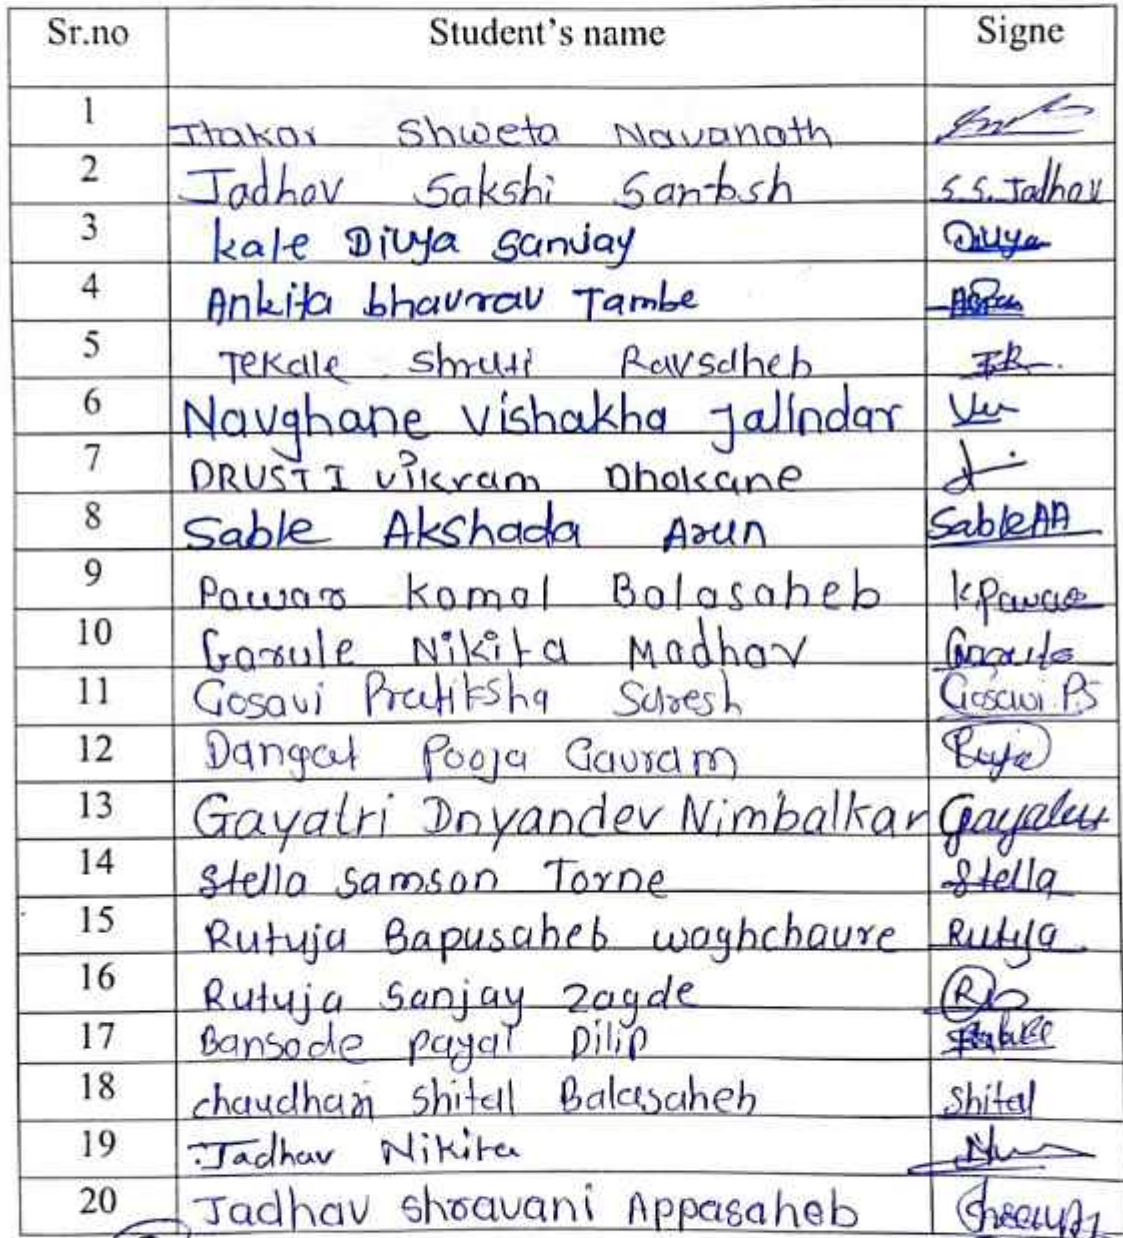 Sr.no Student's name Signe
1 Itakar Shweta Navanath
2 Jadhav Sakshi Santosh S.S. Jadhav
3 kale Divya Sanjay Divya
4 Ankita bhavrav Tambe
5 Tekale Shruti Ravsaheb
6 Navghane Vishakha Jalindar
7 DRUSTI vikram Dhokane
8 Sable Akshada Arun Sable AA
9 Pawar Komal Balasaheb K.Pawar
10 Garule Nikita Madhav Garule
11 Gosavi Pratiksha Suresh Gosavi P.S
12 Dangat Pooja Gavram
13 Gayatri Dnyandev Nimbalkar Gayatri
14 Stella Samson Torne Stella
15 Rutuja Bapusaheb waghchaure Rutuja
16 Rutuja Sanjay Zagde
17 Bansode payal Dilip
18 chaudhari Shital Balasaheb Shital
19 Jadhav Nikita
20 Jadhav Shravani Appasaheb